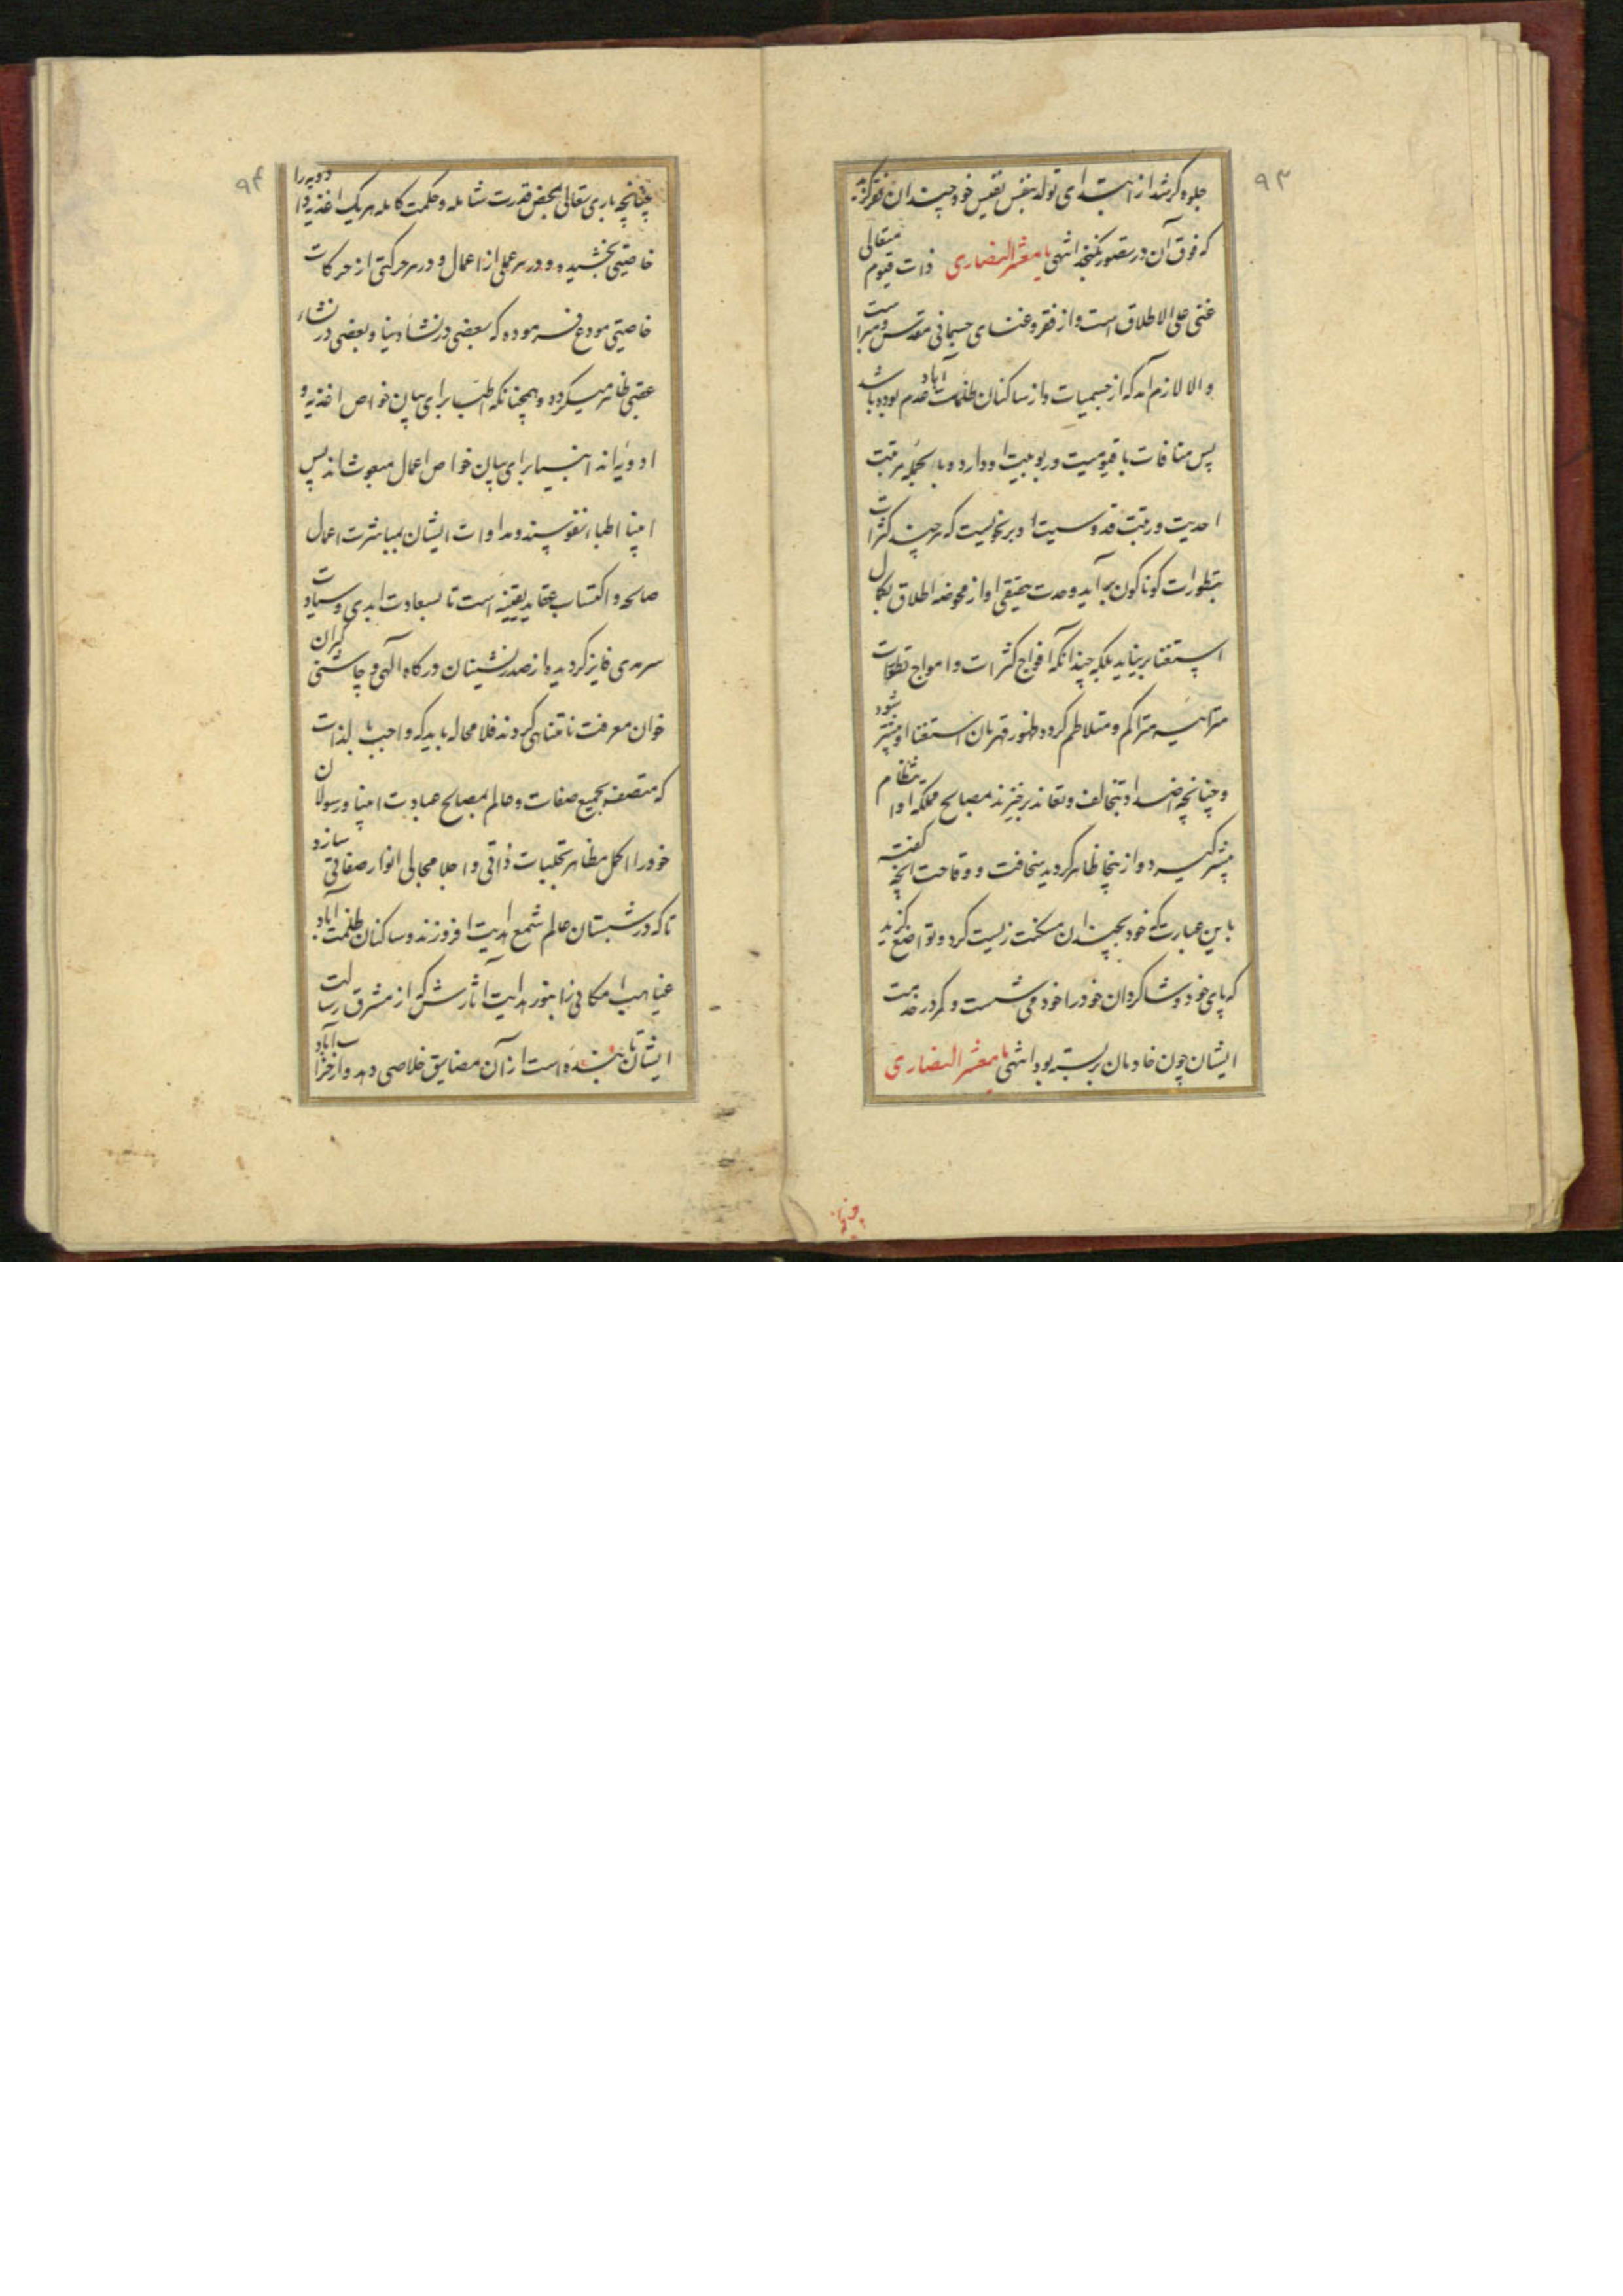 ۹۳
جلوه گر شد از ابتدای تولد بنفس نفیس خود چندان فقر گزید
که فوق آن در تصور نگنجد انتهی یا معشر النصاری ذات قیوم متعالی
غنی علی الاطلاق است و از فقر و غنای جسمانی مقدس و مبراست
و الا لازم آمد که از جسمیات و از ساکنان ظلمات آباد عدم بوده باشد
پس منافات با قیومیت و ربوبیت او دارد و بالجمله مرتبت
احدیت و رتبت قدوسیت او بر نحویست که هر چند کثرات
بتطورات گوناگون بر آید وحدت حقیقی او از محوضه اطلاق بکمال
استغنا بر نیاید بلکه چندانکه افواج کثرات و امواج تطورات
متراکم و متلاطم گردد ظهور قهرمان استغنا او بیشتر شود
و چنانچه اضداد بتخالف و تعاند برخیزند مصالح مملکه او انتظام
بیشتر گیرد و از اینجا ظاهر گردید سخافت و وقاحت آنچه گفته
باین عبارت که خود بچندان مسکنت زیست کرد و تواضع گزید
که پای خود و شاگردان خود را خود می شست و کمر در خدمت
ایشان چون خادمان بر بسته بود انتهی یا معشر النصاری
چنانچه
۹۴
چنانچه باری تعالی بمحض قدرت شامله و حکمت کامله هر یک اغذیه و ادویه را
خاصیتی بخشیده و در هر عملی از اعمال و در هر حرکتی از حرکات
خاصیتی مودع فرموده که بعضی در نشاء دنیا و بعضی در نشاء
عقبی ظاهر میگردد و همچنانکه اطبا برای بیان خواص اغذیه و
ادویه اند انبیا برای بیان خواص اعمال مبعوث اند پس
انبیا اطباء نفوسند و مداوات ایشان بمباشرت اعمال
صالحه و اکتساب عقاید یقینیه است تا بسعادت ابدی و سیادت
سرمدی فایز گردید و از صدر نشینان درگاه الهی و چاشنی گیران
خوان معرفت نا متناهی گردند فلا محاله باید که واجب بالذات
که متصف بجمیع صفات و عالم بمصالح عباد است انبیا و رسولان
خود را اکمل مظاهر تجلیات ذاتی و اجلا مجالی انوار صفاتی سازد
تا که در شبستان عالم شمع هدایت افروزند و ساکنان ظلمت آباد
غیاهب امکانی را بنور هدایت آثارش که از مشرق رسالت
ایشان تابنده است از آن مضایق خلاصی دهد و از خراب آباد